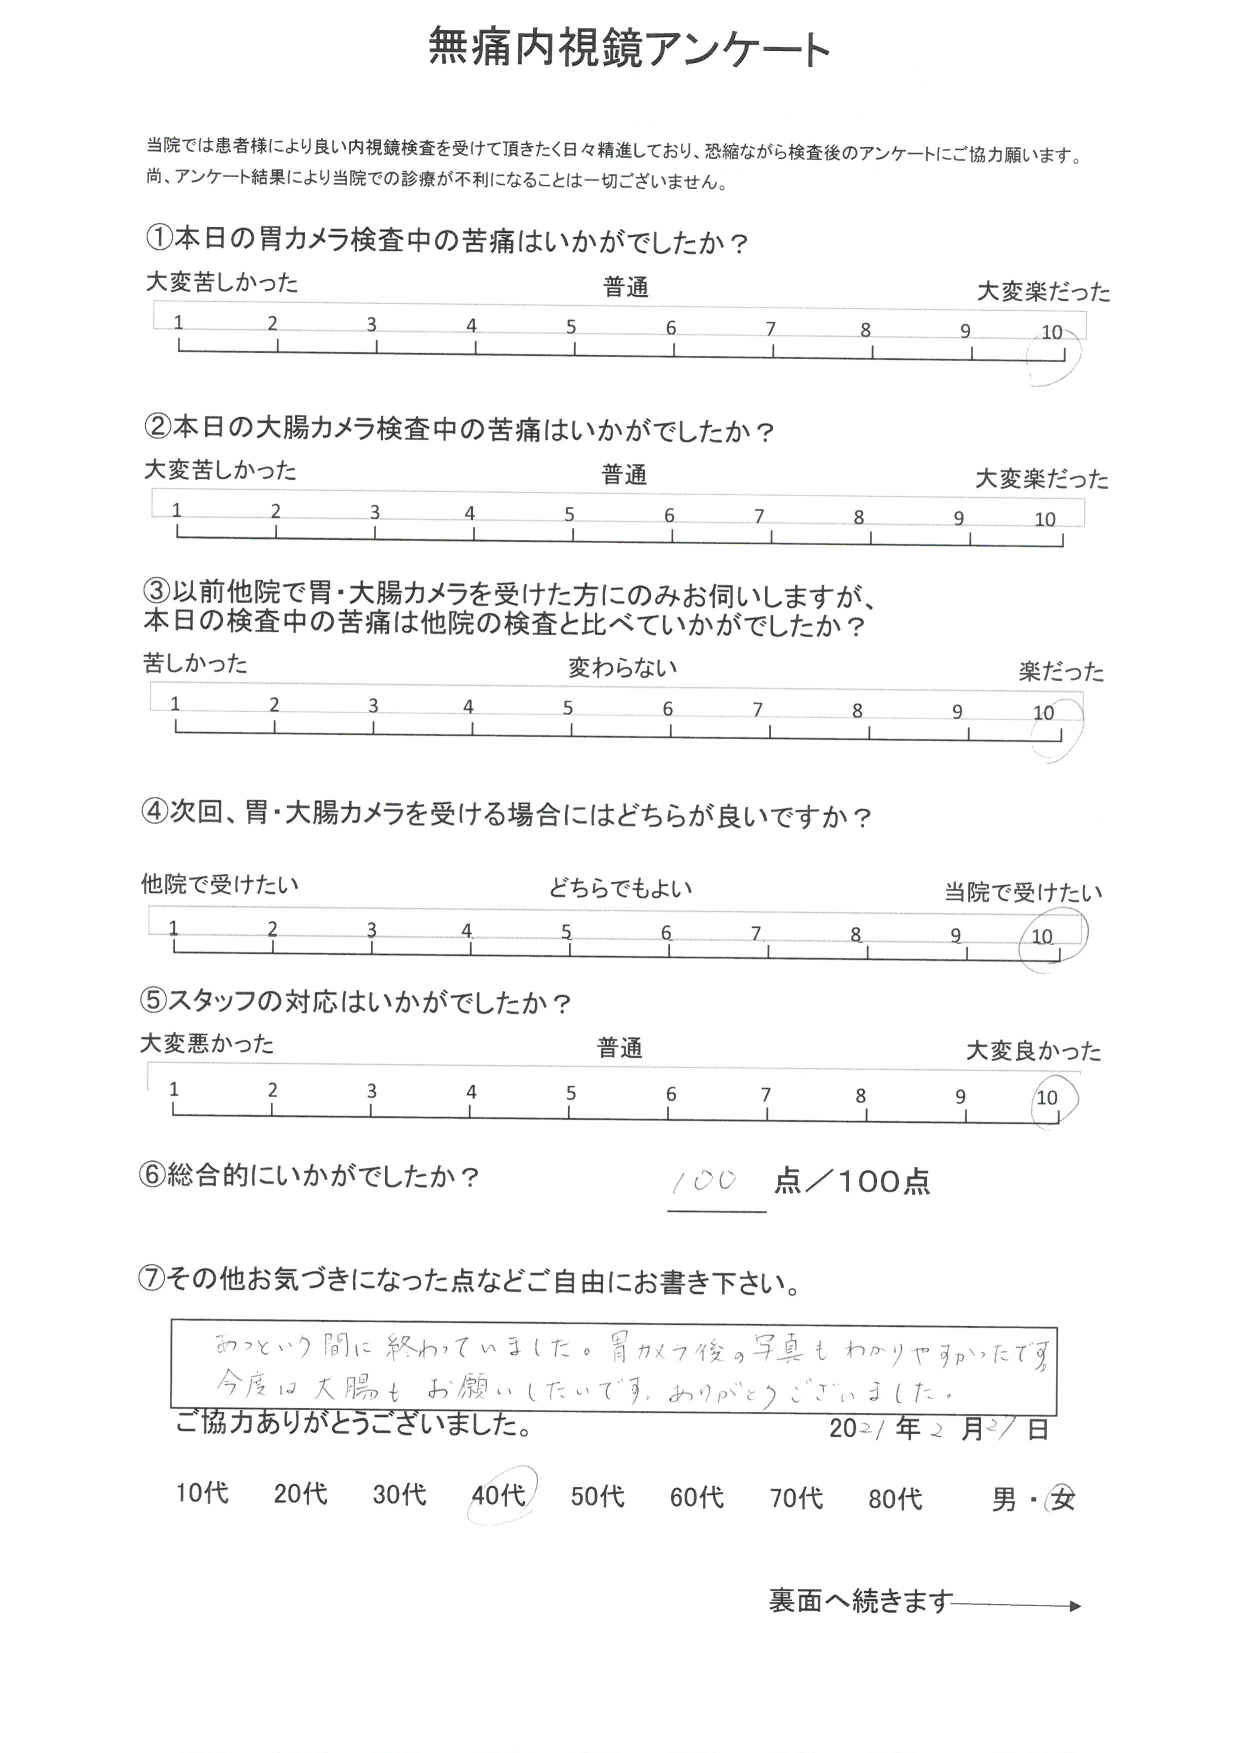 無痛内視鏡アンケート
当院では患者様により良い内視鏡検査を受けて頂きたく日々精進しており、恐縮ながら検査後のアンケートにご協力願います。
尚、アンケート結果により当院での診療が不利になることは一切ございません。
①本日の胃カメラ検査中の苦痛はいかがでしたか？
大変苦しかった 普通 大変楽だった
1 2 3 4 5 6 7 8 9 10
②本日の大腸カメラ検査中の苦痛はいかがでしたか？
大変苦しかった 普通 大変楽だった
1 2 3 4 5 6 7 8 9 10
③以前他院で胃・大腸カメラを受けた方にのみお伺いしますが、
本日の検査中の苦痛は他院の検査と比べていかがでしたか？
苦しかった 変わらない 楽だった
1 2 3 4 5 6 7 8 9 10
④次回、胃・大腸カメラを受ける場合にはどちらが良いですか？
他院で受けたい どちらでもよい 当院で受けたい
1 2 3 4 5 6 7 8 9 10
⑤スタッフの対応はいかがでしたか？
大変悪かった 普通 大変良かった
1 2 3 4 5 6 7 8 9 10
⑥総合的にいかがでしたか？ 100 点／100点
⑦その他お気づきになった点などご自由にお書き下さい。
あっという間に終わっていました。胃カメラ後の写真もわかりやすかったです。
今度は大腸もお願いしたいです。ありがとうございました。
ご協力ありがとうございました。 2021年2月27日
10代 20代 30代 40代 50代 60代 70代 80代 男・女
裏面へ続きます